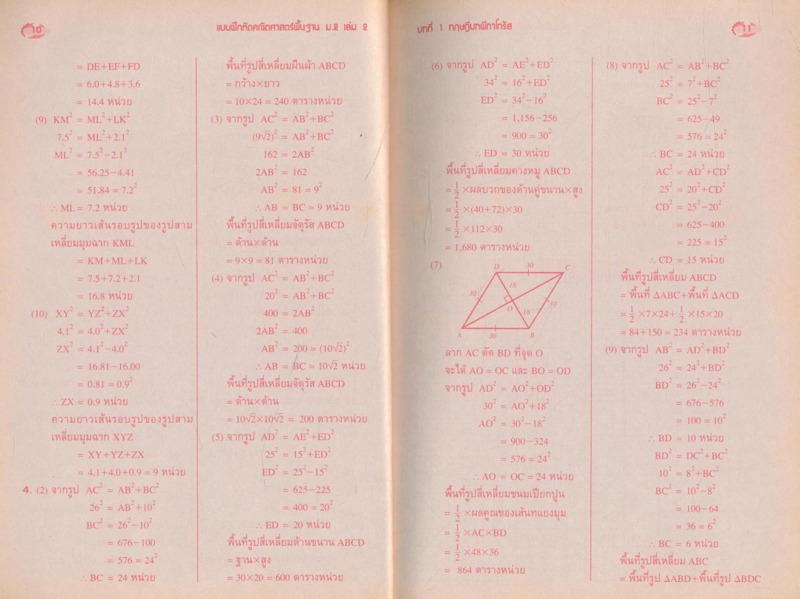 ๑๐
แบบฝึกหัดคณิตศาสตร์พื้นฐาน ม.2 เล่ม 2
= DE+EF+FD
= 6.0+4.8+3.6
= 14.4 หน่วย
(9) KM² = ML²+LK²
7.5² = ML²+2.1²
ML² = 7.5²−2.1²
= 56.25−4.41
= 51.84 = 7.2²
∴ ML = 7.2 หน่วย
ความยาวเส้นรอบรูปของรูปสาม
เหลี่ยมมุมฉาก KML
= KM+ML+LK
= 7.5+7.2+2.1
= 16.8 หน่วย
(10) XY² = YZ²+ZX²
4.1² = 4.0²+ZX²
ZX² = 4.1²−4.0²
= 16.81−16.00
= 0.81 = 0.9²
∴ ZX = 0.9 หน่วย
ความยาวเส้นรอบรูปของรูปสาม
เหลี่ยมมุมฉาก XYZ
= XY+YZ+ZX
= 4.1+4.0+0.9 = 9 หน่วย
4. (2) จากรูป AC² = AB²+BC²
26² = AB²+10²
BC² = 26²−10²
= 676−100
= 576 = 24²
∴ BC = 24 หน่วย
พื้นที่รูปสี่เหลี่ยมผืนผ้า ABCD
= กว้าง×ยาว
= 10×24 = 240 ตารางหน่วย
(3) จากรูป AC² = AB²+BC²
(9√2)² = AB²+BC²
162 = 2AB²
2AB² = 162
AB² = 81 = 9²
∴ AB = BC = 9 หน่วย
พื้นที่รูปสี่เหลี่ยมจัตุรัส ABCD
= ด้าน×ด้าน
= 9×9 = 81 ตารางหน่วย
(4) จากรูป AC² = AB²+BC²
20² = AB²+BC²
400 = 2AB²
2AB² = 400
AB² = 200 = (10√2)²
∴ AB = BC = 10√2 หน่วย
พื้นที่รูปสี่เหลี่ยมจัตุรัส ABCD
= ด้าน×ด้าน
= 10√2×10√2 = 200 ตารางหน่วย
(5) จากรูป AD² = AE²+ED²
25² = 15²+ED²
ED² = 25²−15²
= 625−225
= 400 = 20²
∴ ED = 20 หน่วย
พื้นที่รูปสี่เหลี่ยมด้านขนาน ABCD
= ฐาน×สูง
= 30×20 = 600 ตารางหน่วย
บทที่ 1 ทฤษฎีบทพีทาโกรัส
(6) จากรูป AD² = AE²+ED²
34² = 16²+ED²
ED² = 34²−16²
= 1,156−256
= 900 = 30²
∴ ED = 30 หน่วย
พื้นที่รูปสี่เหลี่ยมคางหมู ABCD
= ½ ×ผลบวกของด้านคู่ขนาน×สูง
= ½ ×(40+72)×30
= ½ ×112×30
= 1,680 ตารางหน่วย
(7)
D 30 C
18
30 O 30
18
A 30 B
ลาก AC ตัด BD ที่จุด O
จะได้ AO = OC และ BO = OD
จากรูป AD² = AO²+OD²
30² = AO²+18²
AO² = 30²−18²
= 900−324
= 576 = 24²
∴ AO = OC = 24 หน่วย
พื้นที่รูปสี่เหลี่ยมขนมเปียกปูน
= ½ ×ผลคูณของเส้นทแยงมุม
= ½ ×AC×BD
= ½ ×48×36
= 864 ตารางหน่วย
(8) จากรูป AC² = AB²+BC²
25² = 7²+BC²
BC² = 25²−7²
= 625−49
= 576 = 24²
∴ BC = 24 หน่วย
AC² = AD²+CD²
25² = 20²+CD²
CD² = 25²−20²
= 625−400
= 225 = 15²
∴ CD = 15 หน่วย
พื้นที่รูปสี่เหลี่ยม ABCD
= พื้นที่ ΔABC+พื้นที่ ΔACD
= ½ ×7×24+ ½ ×15×20
= 84+150 = 234 ตารางหน่วย
(9) จากรูป AB² = AD²+BD²
26² = 24²+BD²
BD² = 26²−24²
= 676−576
= 100 = 10²
∴ BD = 10 หน่วย
BD² = DC²+BC²
10² = 8²+BC²
BC² = 10²−8²
= 100−64
= 36 = 6²
∴ BC = 6 หน่วย
พื้นที่รูปสี่เหลี่ยม ABC
= พื้นที่รูป ΔABD+พื้นที่รูป ΔBDC